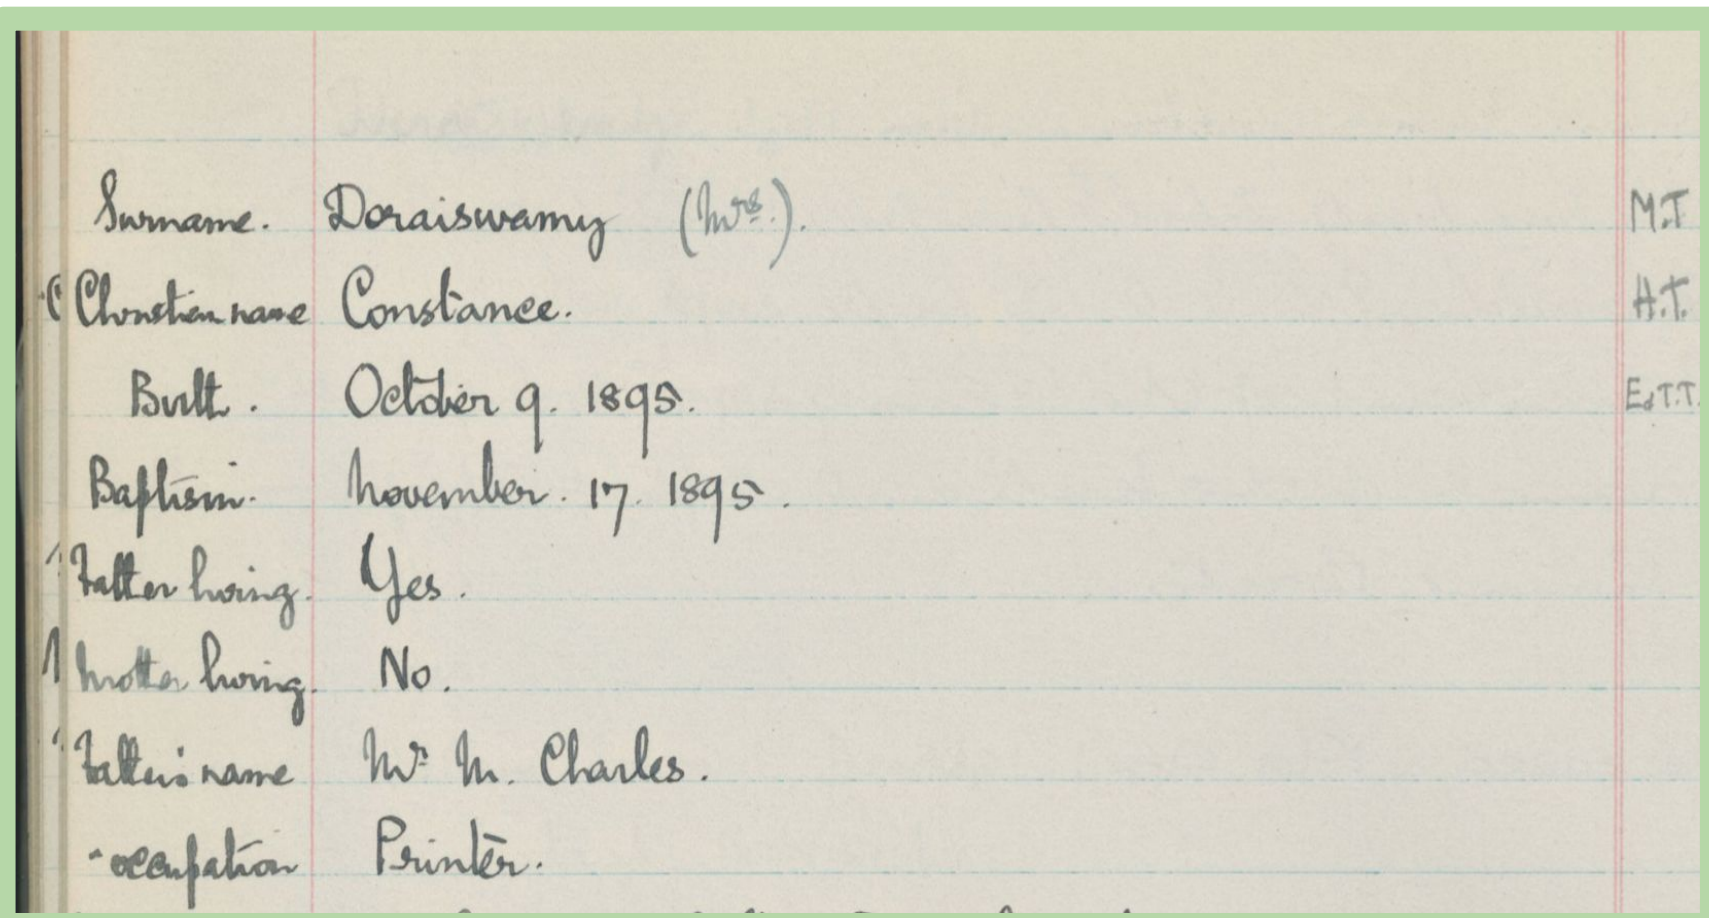 Surname. Doraiswamy (Mrs.). M.T
Christian name Constance. H.T.
Birth. October 9. 1895. Ed T.T.
Baptism. November. 17. 1895.
Father living. Yes.
Mother living. No.
Father's name Mr M. Charles.
" occupation Printer.